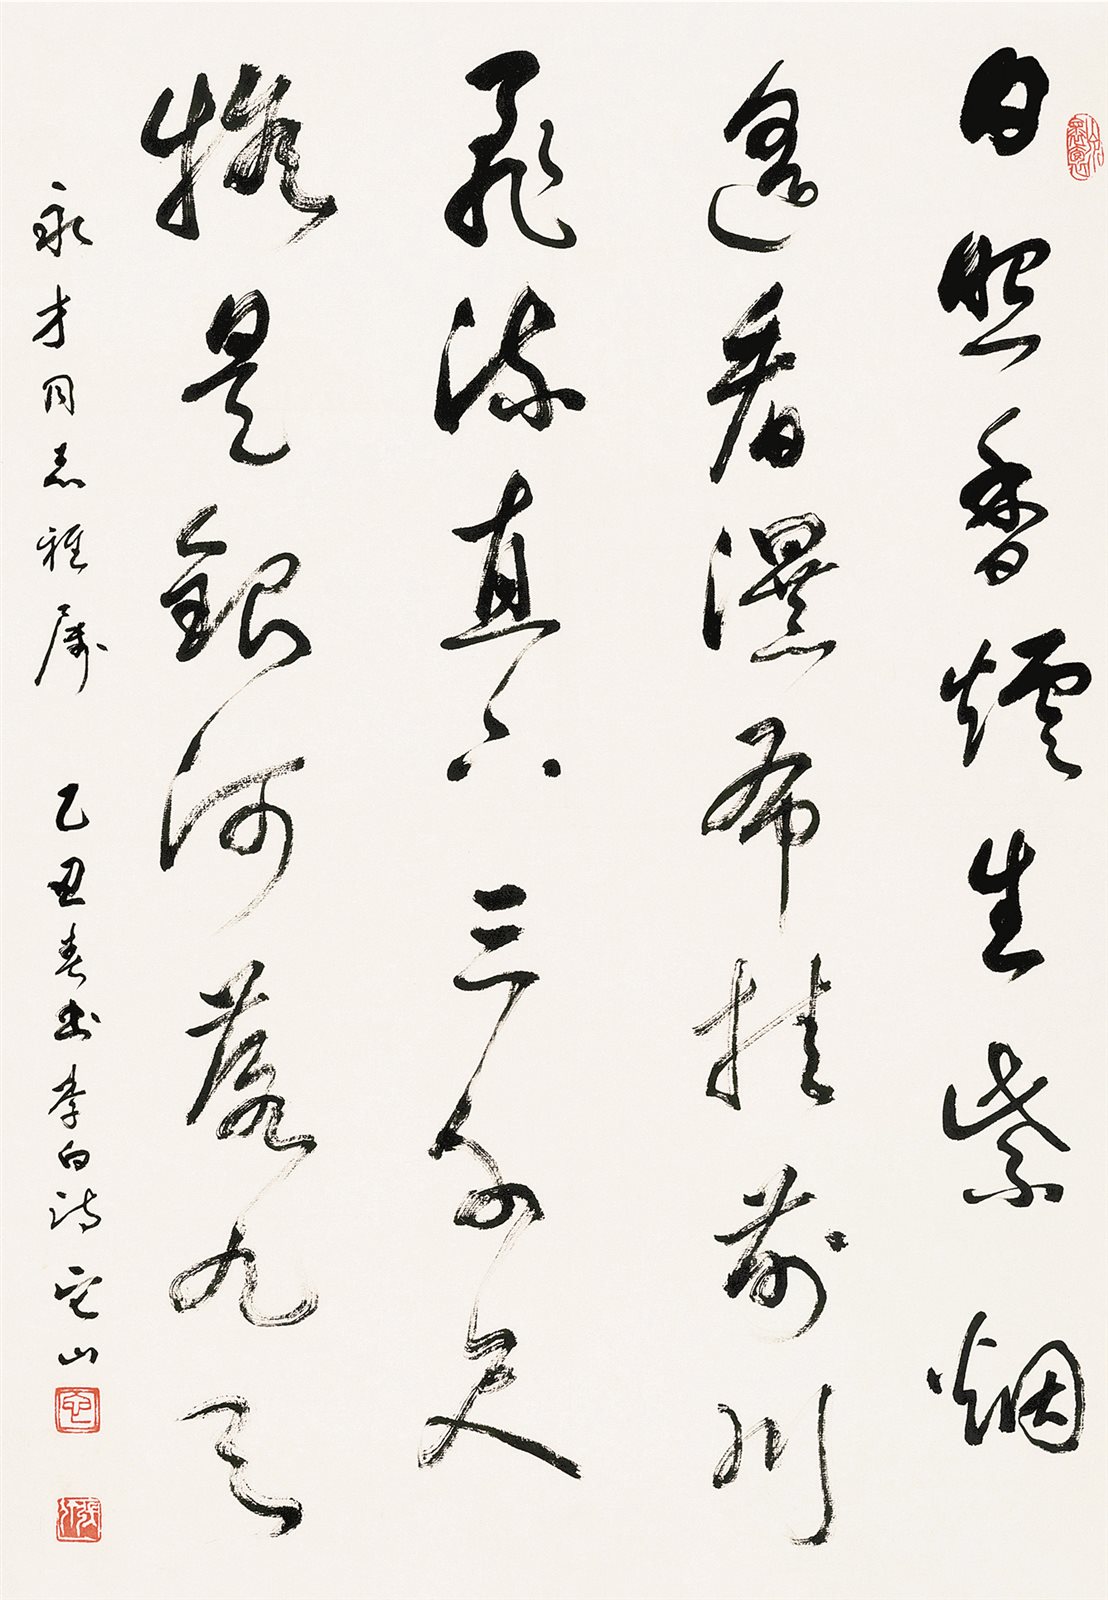 日照香爐生紫烟
遥看瀑布挂前川
飛流直下三千尺
疑是銀河落九天
永才同志雅属 乙丑春書李白詩 它山